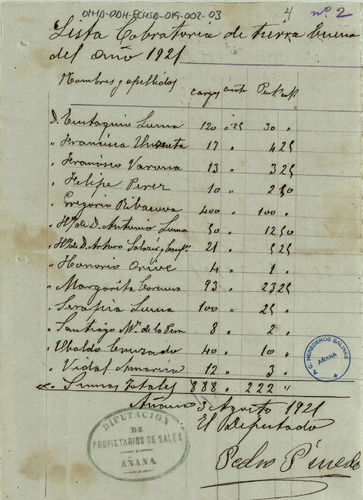 OHA-DDH-FCHSA-019-002-03
nº 2
Lista Cobratoria de tierra buena
del Año 1921
Nombres y apellidos cargas Ptas
D. Eutaquio Luma 120 " 25 30 "
" Francisca 17 " 4 25
" Francisco Varona 13 " 3 25
" Felipe Perez 10 " 2 50
" Gregorio Ribacoba 400 " 100 "
" Hros de D. Antonio Luma 50 " 12 50
" Hros de D. Arturo Salazar 21 " 5 25
" Honorio Orive 4 " 1 "
" Margarita 93 " 23 25
" Serafina Luma 100 " 25 "
" Santiago Mz. de la 8 " 2 "
" Ubaldo Cruzado 40 " 10 "
" Vidal 12 " 3 "
Sumas totales 888 " 222 "
Añana 3 Agosto 1921
El Diputado
Pedro Pinedo
DIPUTACION
DE
PROPIETARIOS DE SALES
AÑANA
F.C. HEREDEROS SALINAS
AÑANA